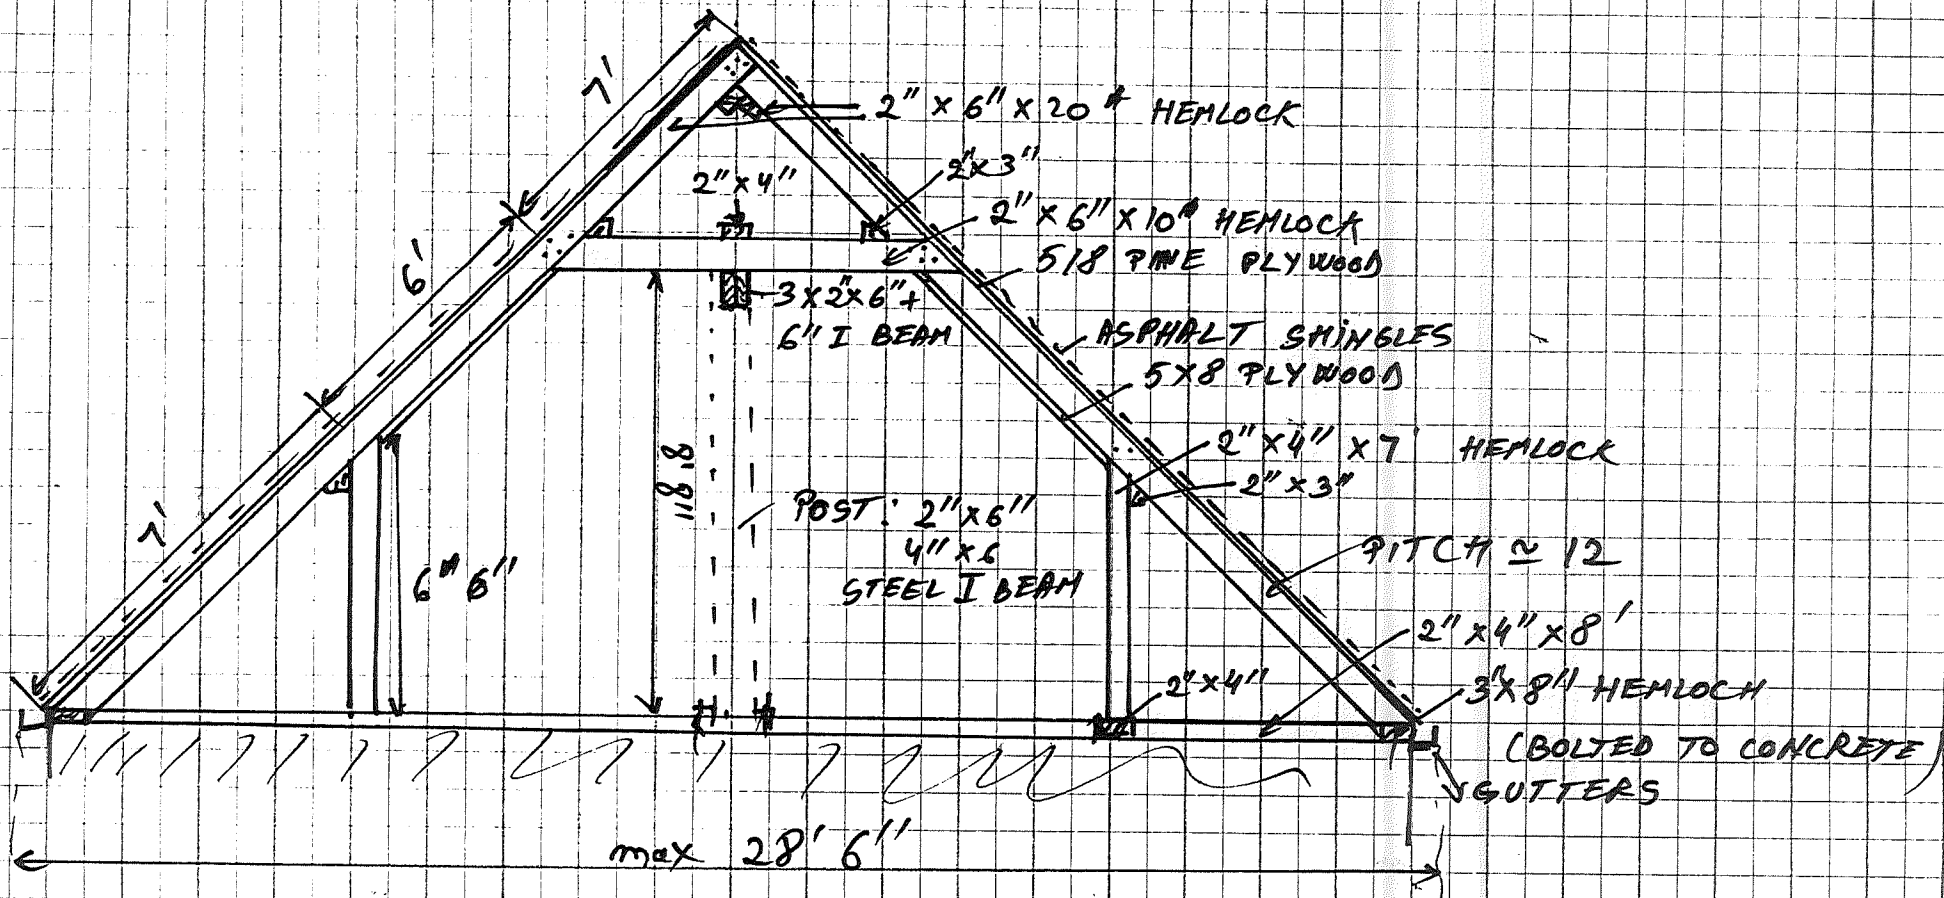 7'
2" X 6" X 20" HEMLOCK
2"X3"
2" X 4"
2" X 6" X 10" HEMLOCK
5/8 PINE PLYWOOD
6'
3 X 2"X 6" +
6" I BEAM
ASPHALT SHINGLES
5X8 PLYWOOD
2" X 4" X 7' HEMLOCK
2" X 3"
8' 8"
POST: 2" X 6"
4" X 6
STEEL I BEAM
7'
PITCH ≃ 12
6" 6"
2" X 4" X 8'
2" X 4"
3"X 8" HEMLOCH
(BOLTED TO CONCRETE)
GUTTERS
max 28' 6"